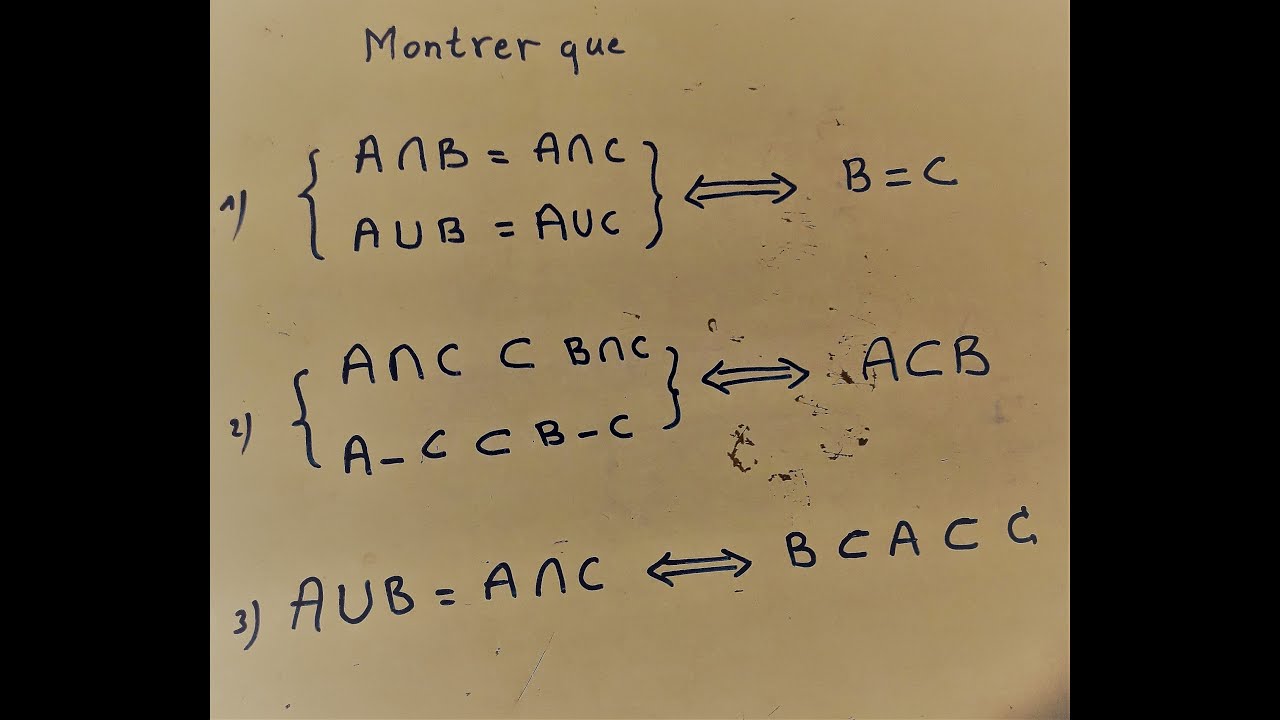 Montrer que
1) { A∩B = A∩C
A∪B = A∪C } ⟺ B = C
2) { A∩C ⊂ B∩C
A-C ⊂ B-C } ⟺ A⊂B
3) A∪B = A∩C ⟺ B⊂A⊂C